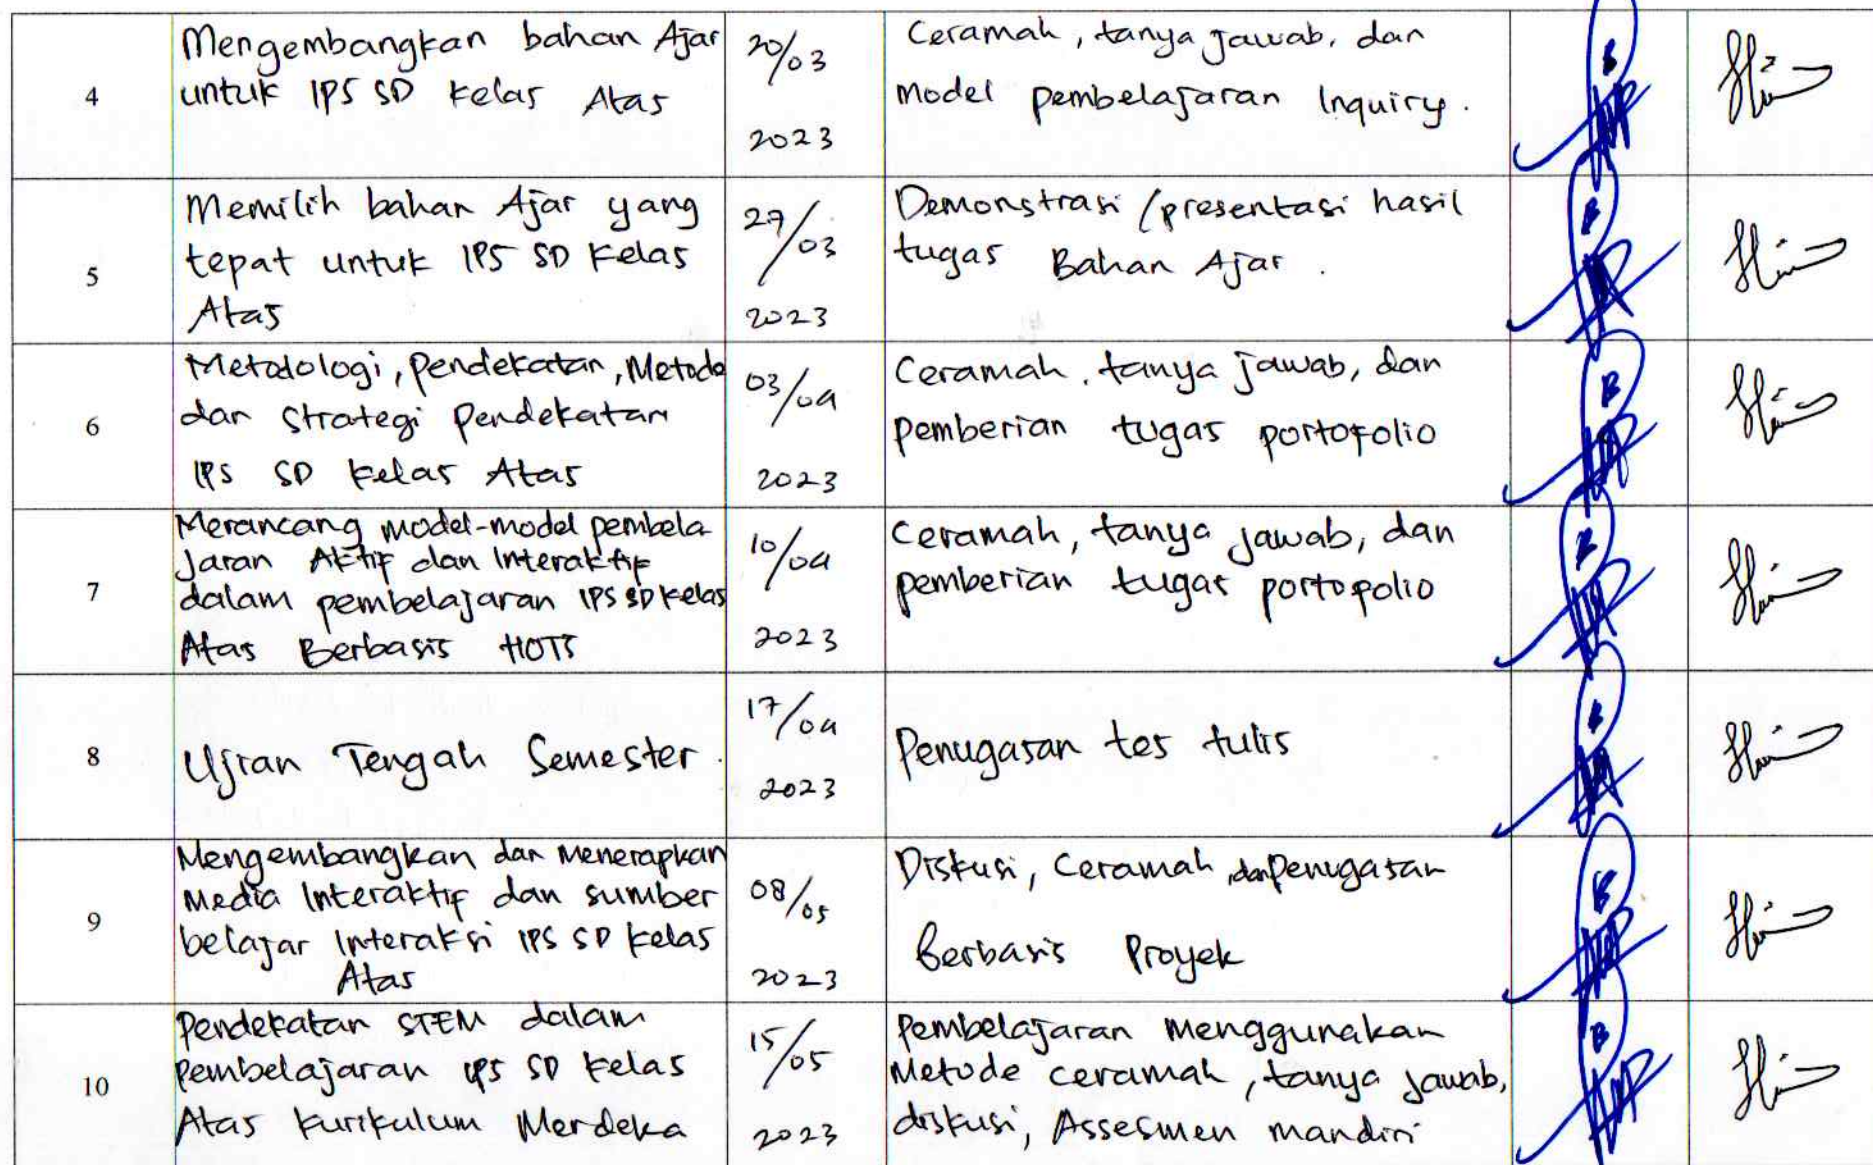 4
Mengembangkan bahan Ajar
untuk IPS SD Kelas Atas
20/03
2023
Ceramah, tanya jawab, dan
model pembelajaran Inquiry.
5
Memilih bahan Ajar yang
tepat untuk IPS SD Kelas
Atas
27/03
2023
Demonstrasi/presentasi hasil
tugas Bahan Ajar.
6
Metodologi, pendekatan, Metode
dan Strategi Pendekatan
IPS SD Kelas Atas
03/04
2023
Ceramah, tanya jawab, dan
pemberian tugas portofolio
7
Merancang model-model pembela
jaran Aktif dan Interaktif
dalam pembelajaran IPS SD Kelas
Atas Berbasis HOTS
10/04
2023
Ceramah, tanya jawab, dan
pemberian tugas portopolio
8
Ujian Tengah Semester.
17/04
2023
Penugasan tes tulis
9
Mengembangkan dan Menerapkan
Media Interaktif dan sumber
belajar Interaksi IPS SD Kelas
Atas
08/05
2023
Diskusi, Ceramah, dan Penugasan
Berbasis Proyek
10
Pendekatan STEM dalam
pembelajaran IPS SD Kelas
Atas Kurikulum Merdeka
15/05
2023
Pembelajaran menggunakan
Metode ceramah, tanya jawab,
diskusi, Assesmen mandiri